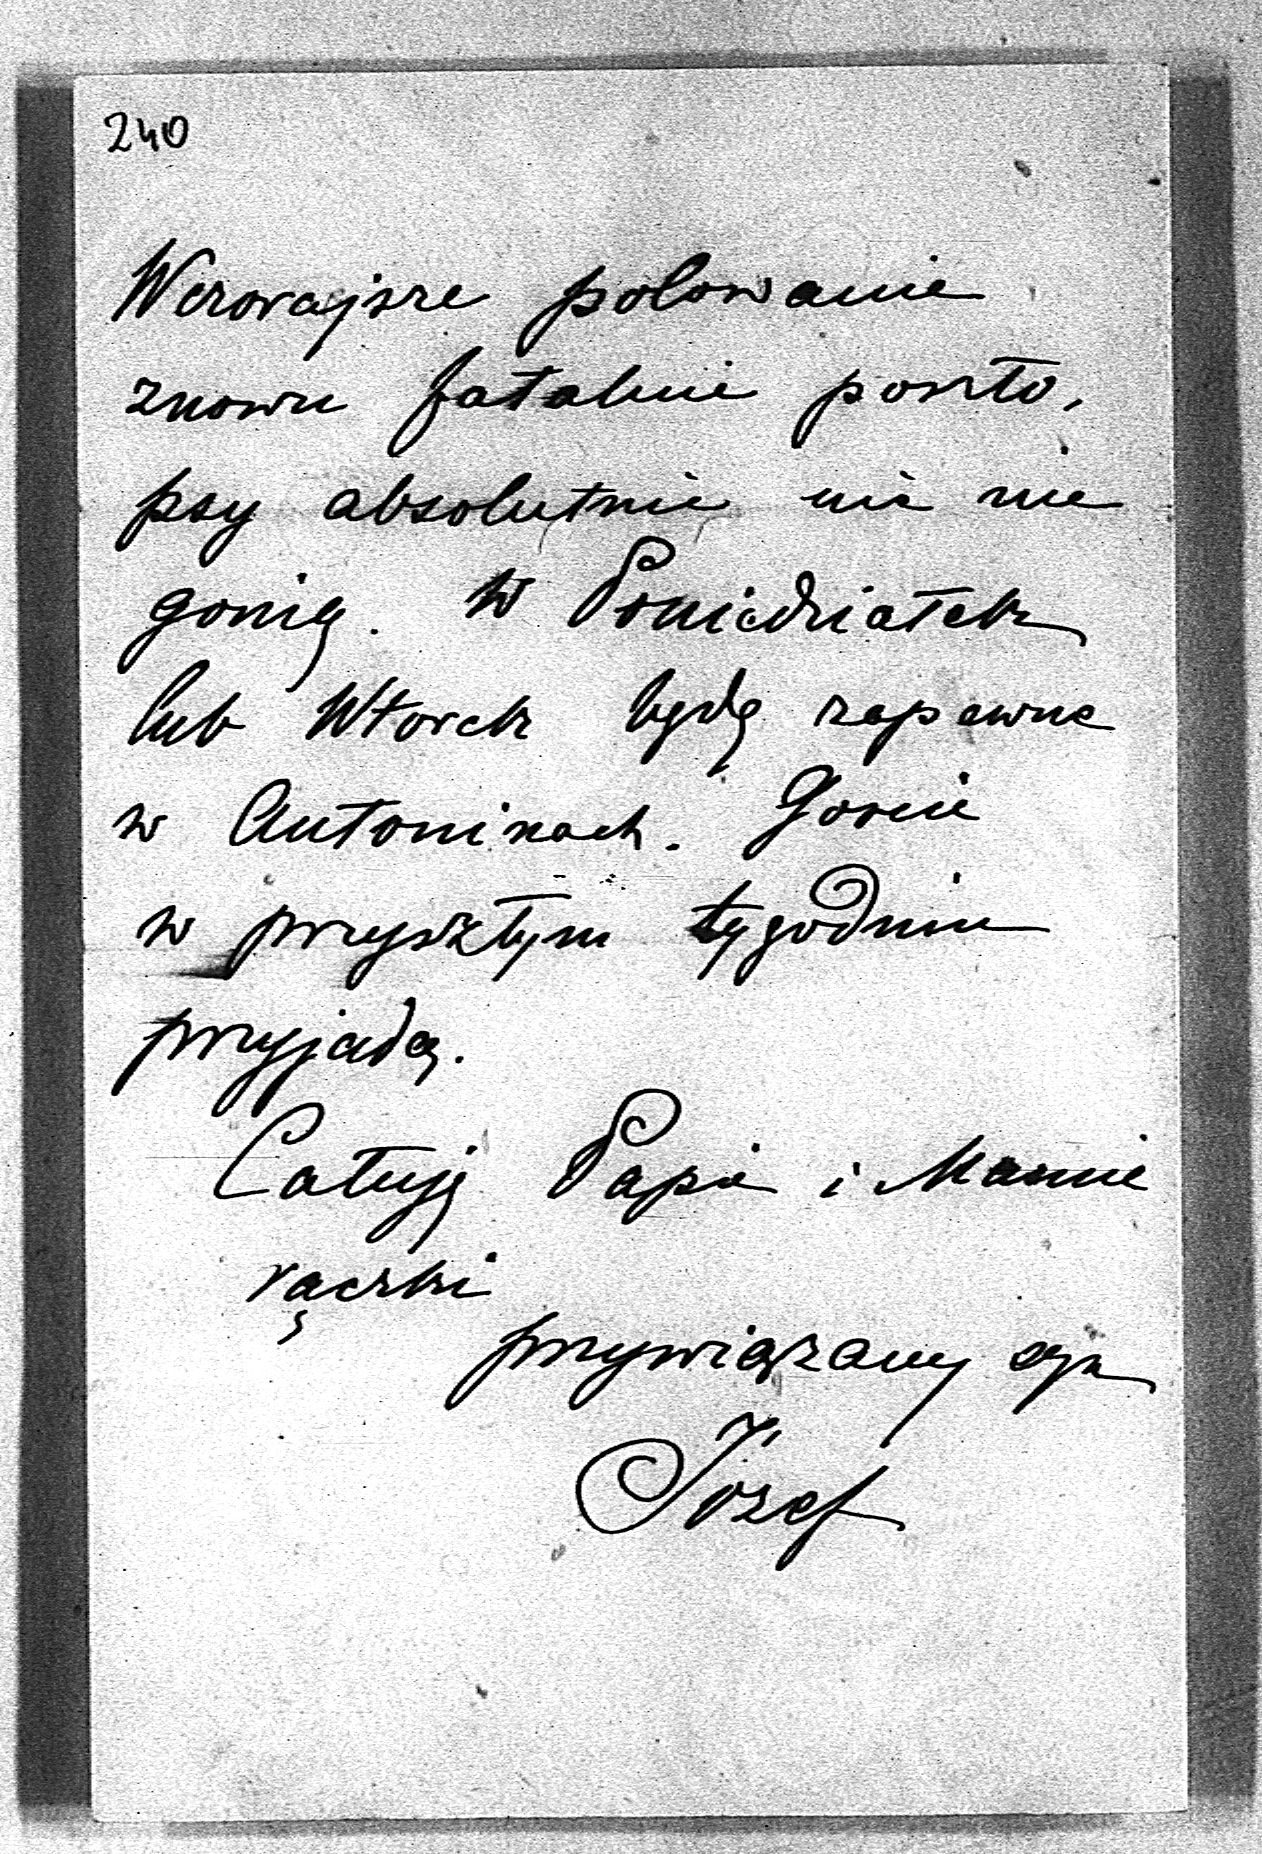 240
Wczorajsze polowanie
znowu fatalnie poszło,
psy absolutnie nic nie
gonią. W Poniedziałek
lub Wtorek będę zapewne
w Antoninach.
w przyszłym tygodniu
przyjadą.
Całuję Papie i Mamie
rączki
przywiązany syn
Józef